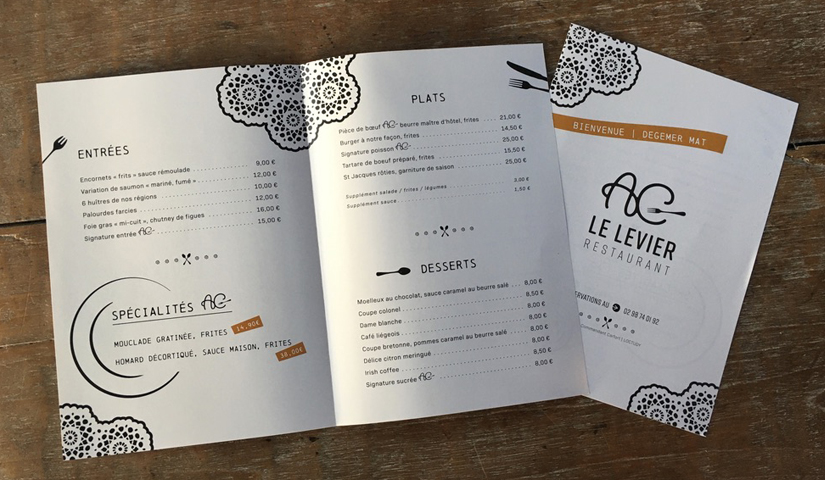 ENTRÉES
Encornets « frits » sauce rémoulade 9,00 €
Variation de saumon « mariné, fumé » 12,00 €
6 huîtres de nos régions 10,00 €
Palourdes farcies 12,00 €
Foie gras « mi-cuit », chutney de figues 16,00 €
Signature entrée AC 15,00 €
SPÉCIALITÉS AC
MOUCLADE GRATINÉE, FRITES 14,90€
HOMARD DÉCORTIQUÉ, SAUCE MAISON, FRITES
38,00€
PLATS
Pièce de bœuf AC beurre maître d'hôtel, frites 21,00 €
Burger à notre façon, frites 14,50 €
Signature poisson AC 25,00 €
Tartare de boeuf préparé, frites 15,50 €
St Jacques rôties, garniture de saison 25,00 €
Supplément salade / frites / légumes 3,00 €
Supplément sauce 1,50 €
DESSERTS
Moelleux au chocolat, sauce caramel au beurre salé 8,00 €
Coupe colonel 8,50 €
Dame blanche 8,00 €
Café liégeois 8,00 €
Coupe bretonne, pommes caramel au beurre salé 9,00 €
Délice citron meringué 8,00 €
Irish coffee 8,50 €
Signature sucrée AC 8,00 €
BIENVENUE | DEGEMER MAT
AC
LE LEVIER
RESTAURANT
ERVATIONS AU 02 98 74 01 92